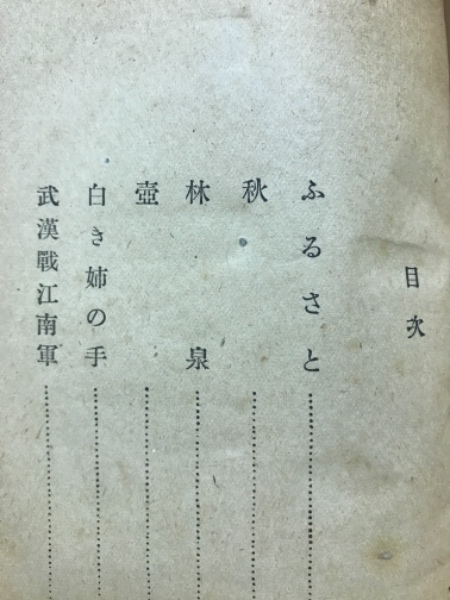 目次
ふるさと
秋
林泉
壺
白き姉の手
武漢戰江南軍